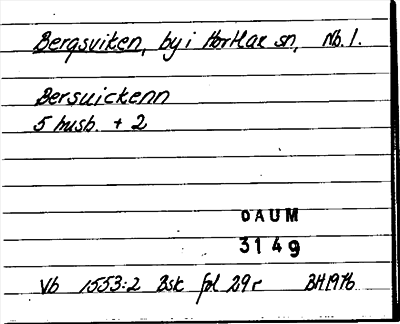 Bergsviken, by i Hortlax sn, Nb. 1.
Bersuickenn
5 husb. + 2
OAUM
3149
Vb 1553:2 Bsk fol 29r BH1976